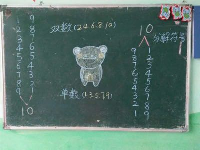 双数(2.4.6.8.10)
单数(1.3.5.7.9)
1 9
2 8
3 7
4 6
5 5
6 4
7 3
8 2
9 1
10
10
分解符号
9 1
8 2
7 3
6 4
5 5
4 6
3 7
2 8
1 9